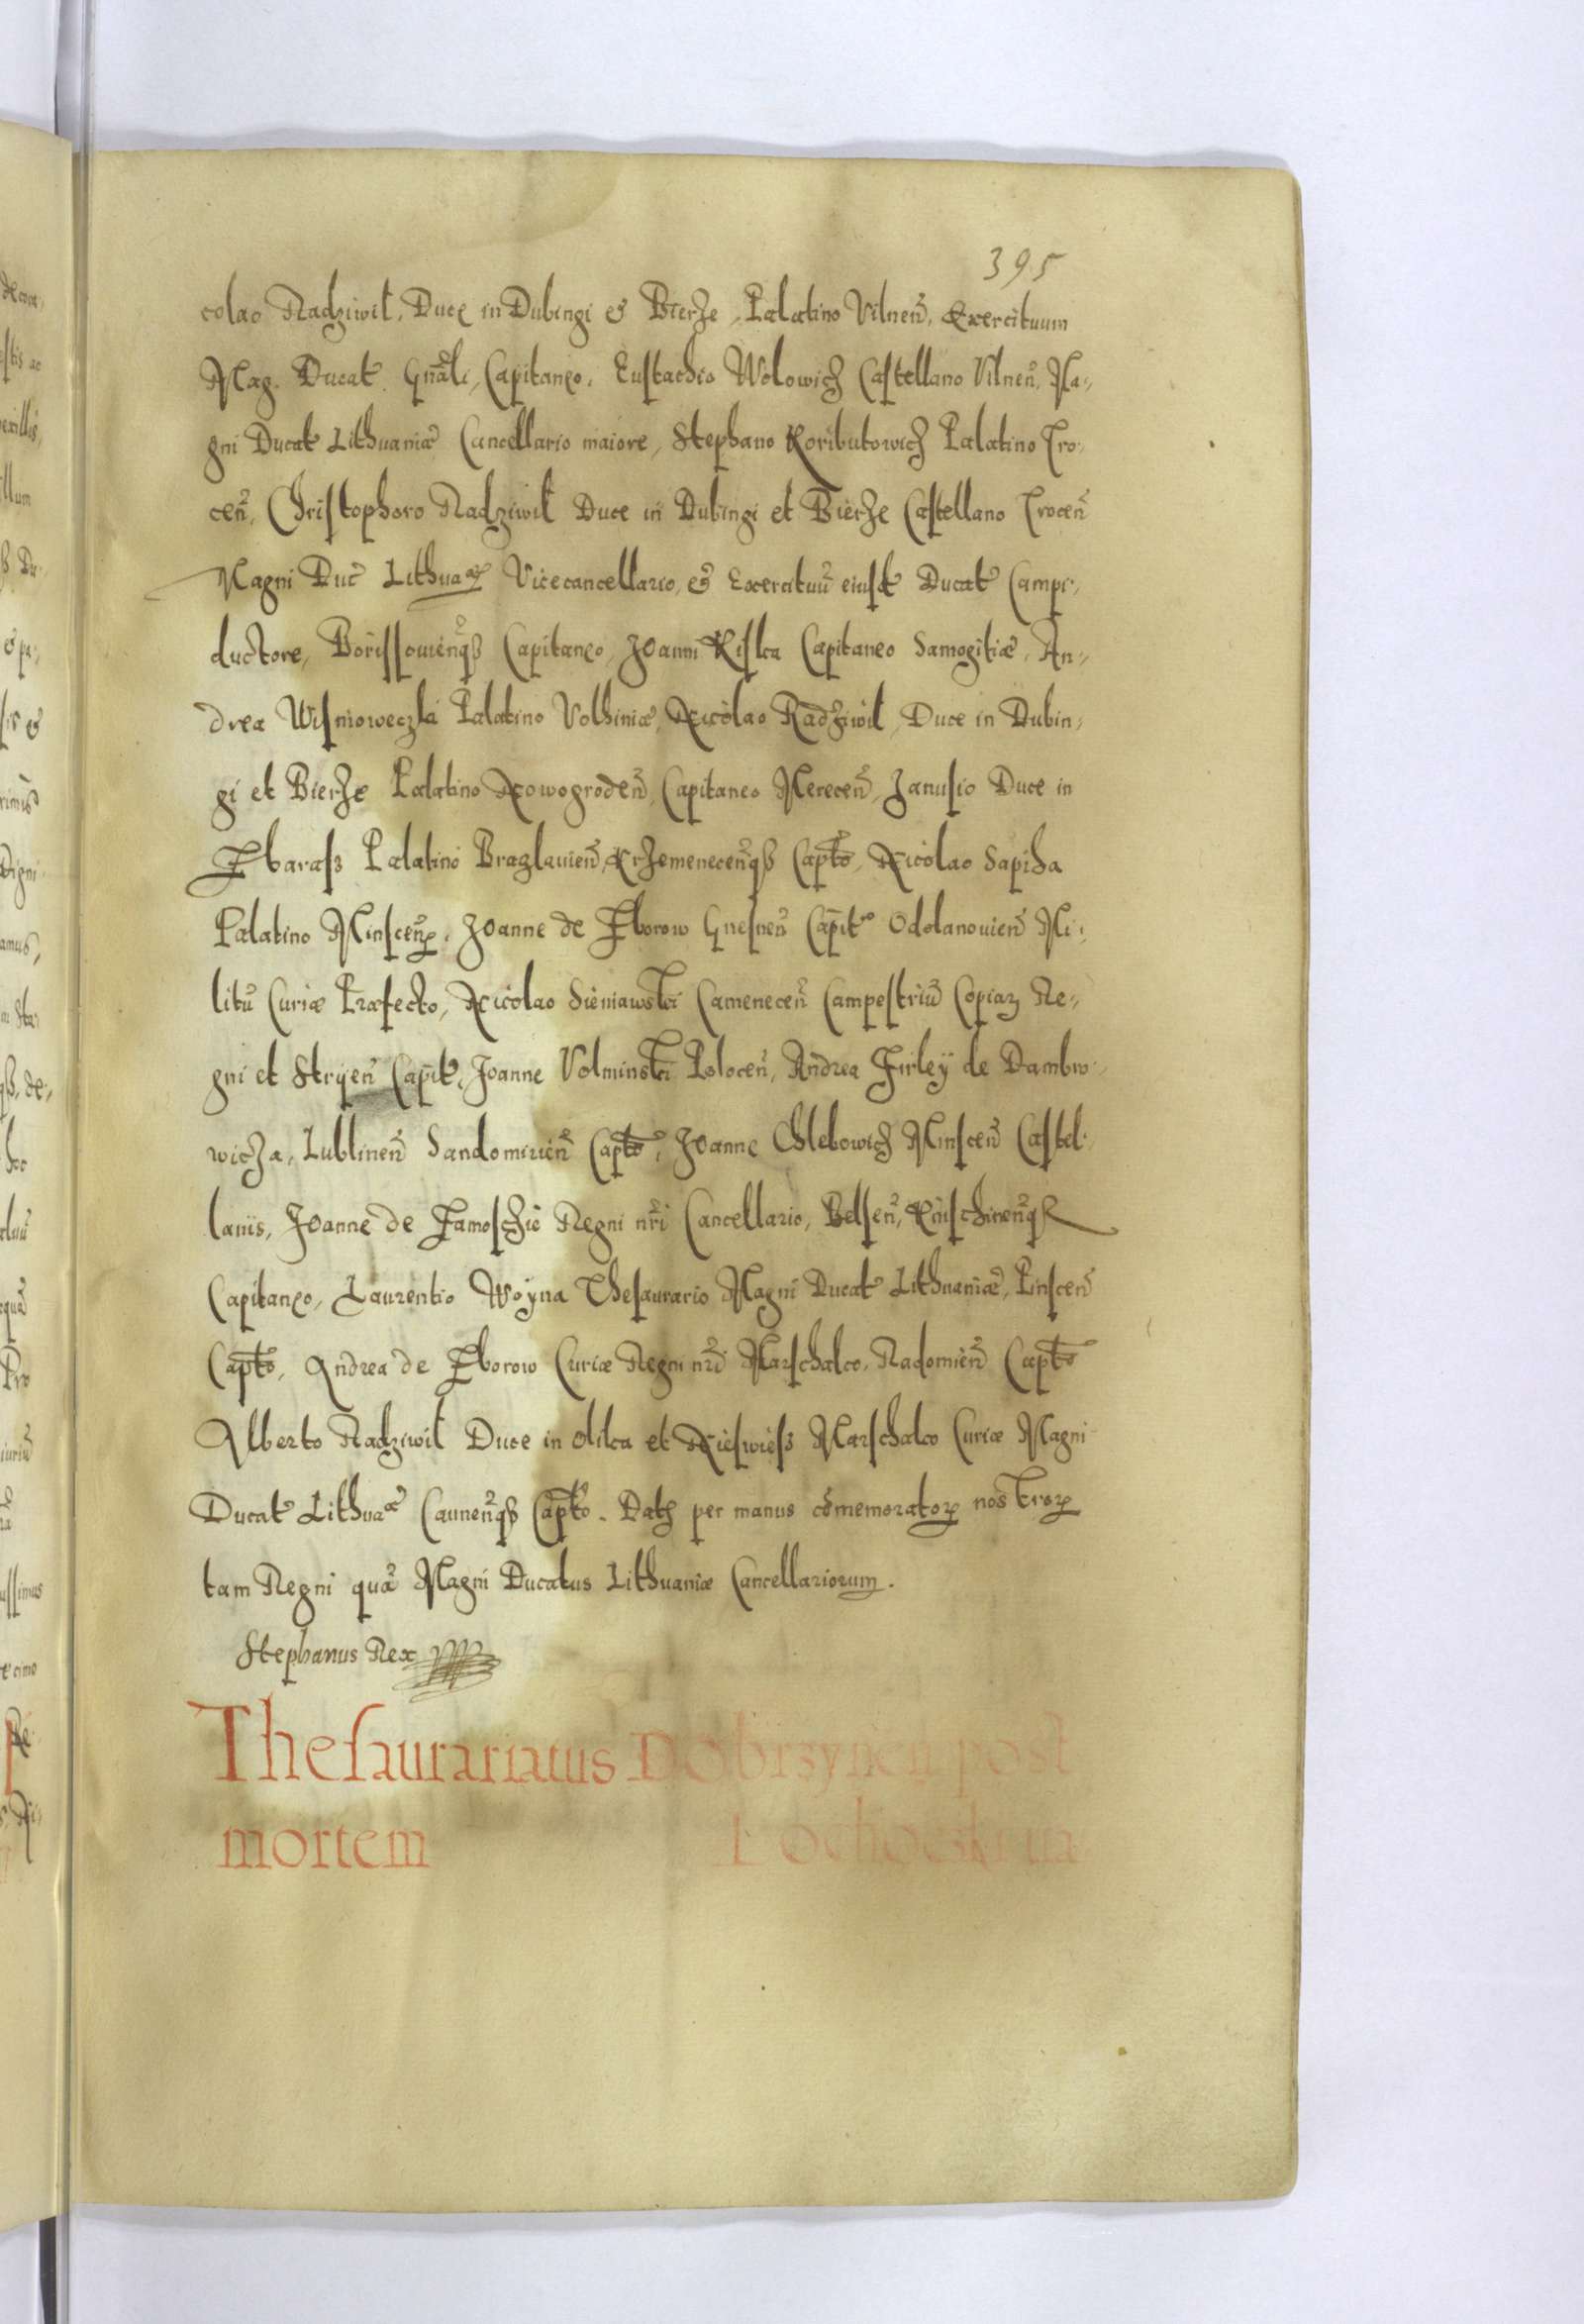 395
colao Radziwil, Duce in Dubingi & Bierze, Palatino Vilnen̄, Exercituum
Mag. Ducat. Gn̄ali, Capitaneo, Eustachio Wolowicz Castellano Vilnen̄, Ma-
gni Ducat Lithuaniæ Cancellario maiore, Stephano Koributowicz Palatino Tro-
cen̄, Christophoro Radziwil Duce in Dubingi et Bierze Castellano Trocen̄
Magni Duc̄ Lithuaæ Vicecancellario, & Exercituū eiusd Ducat Campi-
ductore, Borissouien̄qꝫ Capitaneo, Joanni Kiska Capitaneo Samogitiæ, An-
drea Wisnioweczki Palatino Volhiniæ, Nicolao Radziwil, Duce in Dubin-
gi et Bierze Palatino Nowogroden̄, Capitaneo Merecen̄, Janusio Duce in
Zbarasz Palatino Braczlauien̄, Krzemenecen̄qꝫ Cap̄to, Nicolao Sapiha
Palatino Minscen̄, Joanne de Zborow Gnesnen̄ Capit° Odolanouien̄ Mi-
litū Curiæ Præfecto, Nicolao Sieniawski Camenecen̄ Campestriū Copiaꝝ Re-
gni et Stryen̄ Capit, Joanne Volminski Polocen̄, Andrea Firleÿ de Dambro-
wicza, Lublinen̄ Sandomirien̄ Cap̄to, Joanne Chlebowicz Minscen̄ Castel-
lanis, Joanne de Zamoschie Regni nr̄i Cancellario, Belsen̄, Knischinen̄qꝫ
Capitaneo, Laurentio Woyna Thesaurario Magni Ducat Lithuaniæ, Pinscen̄
Cap̄to, Andrea de Zborow Curiæ Regni nr̄i Marschalco, Radomien̄ Cap̄to
Alberto Radziwil Duce in Olika et Nieswiesz Marschalco Curiæ Magni
Ducat Lithuaæ Caunen̄qꝫ Cap̄to. Dat per manus com̄emoratoꝝ nostroꝝ
tam Regni quā Magni Ducatus Lithuaniæ Cancellariorum.
Stephanus Rex
Thesaurariatus Dobrzynen̄ post
mortem